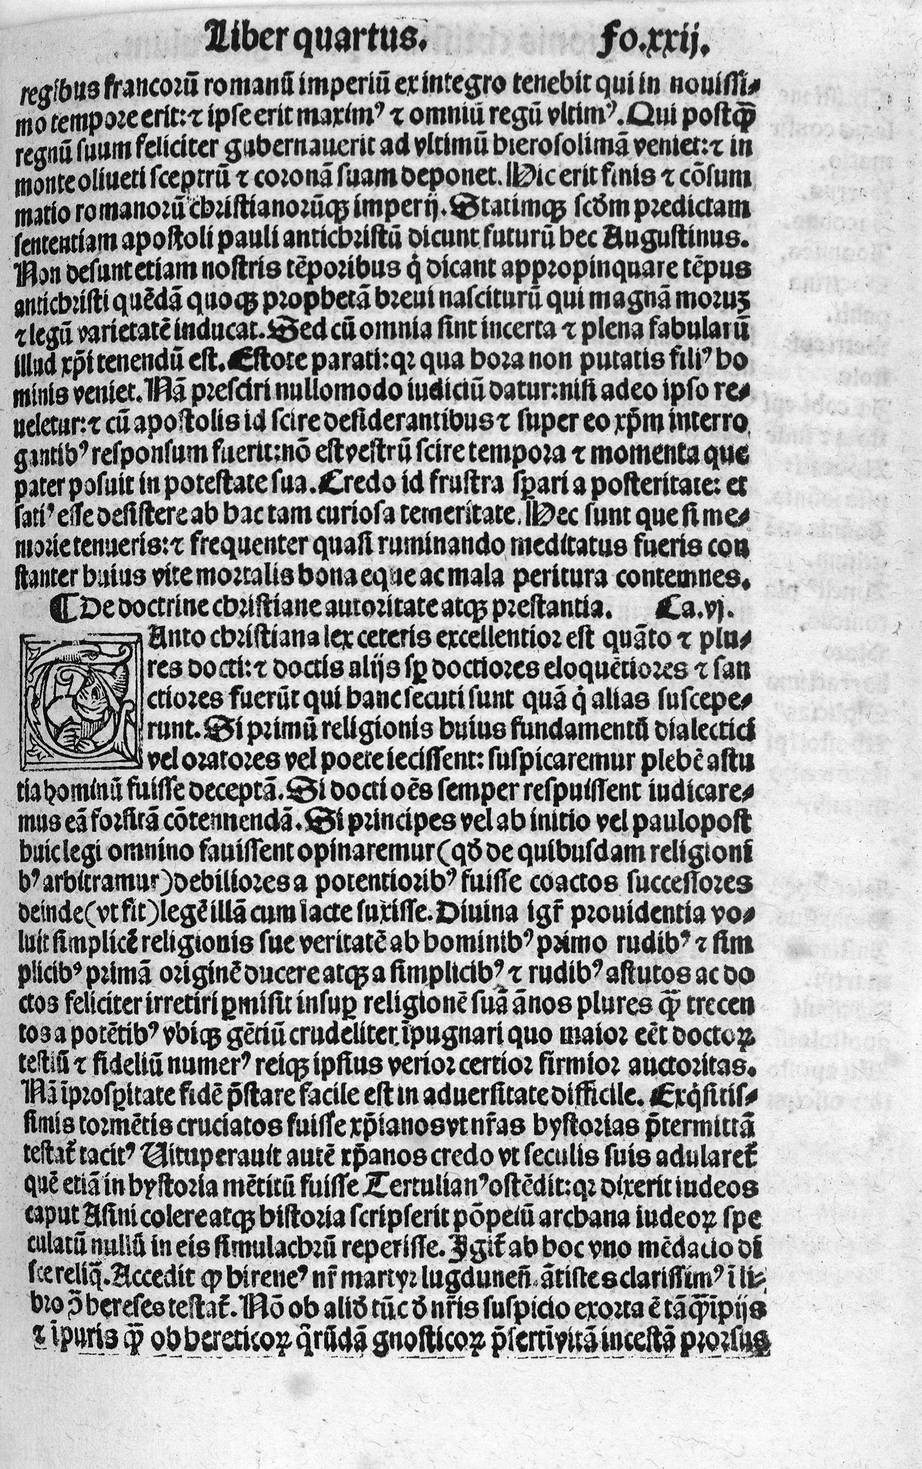 Liber quartus. fo.xxij.
regibus francorū romanū imperiū ex integro tenebit qui in nouissi⸗
mo tempore erit: ⁊ ipse erit maximꝰ ⁊ omniū regū vltimꝰ. Qui postꝙ̄
regnū suum feliciter gubernauerit ad vltimū hierosolimā veniet: ⁊ in
monte oliueti sceptrū ⁊ coronā suam deponet. Hic erit finis ⁊ cōsum
matio romanorū christianorūqꝫ imperij. Statimqꝫ scd̄m predictam
sententiam apostoli pauli antichristū dicunt futurū hec Augustinus.
Non desunt etiam nostris tēporibus q̇ dicant appropinquare tēpus
antichristi quēdā quoqꝫ prophetā breui nasciturū qui magnā moruꝫ
⁊ legū varietatē inducat. Sed cū omnia sint incerta ⁊ plena fabularū
illud xp̄i tenendū est. Estote parati: qꝛ qua hora non putatis filiꝰ ho
minis veniet. Nā presciri nullomodo iudiciū datur: nisi adeo ipso re⸗
ueletur: ⁊ cū apostolis id scire desiderantibus ⁊ super eo xp̄m interro
gantibꝰ responsum fuerit: nō est vestrū scire tempora ⁊ momenta que
pater posuit in potestate sua. Credo id frustra sꝑari a posteritate: et
satiꝰ esse desistere ab hac tam curiosa temeritate. Hec sunt que si me⸗
morie tenueris: ⁊ frequenter quasi ruminando meditatus fueris con
stanter huius vite mortalis bona eque ac mala peritura contemnes.
¶ De doctrine christiane autoritate atqꝫ prestantia. Ca.vj.
Anto christiana lex ceteris excellentior est quāto ⁊ plu⸗
res docti: ⁊ doctis alijs sꝑ doctiores eloquētiores ⁊ san
ctiores fuerūt qui hanc secuti sunt quā q̇ alias suscepe⸗
runt. Si primū religionis huius fundamentū dialectici
vel oratores vel poete iecissent: suspicaremur plebē astu
tia hominū fuisse deceptā. Si docti oēs semper respuissent iudicare⸗
mus eā forsitā cōtennendā. Si principes vel ab initio vel paulopost
huic legi omnino fauissent opinaremur (qd̄ de quibusdam religioni
bꝰ arbitramur) debiliores a potentioribꝰ fuisse coactos successores
deinde (vt fit) legē illā cum lacte suxisse. Diuina igr̄ prouidentia vo⸗
luit simplicē religionis sue veritatē ab hominibꝰ primo rudibꝰ ⁊ sim
plicibꝰ primā originē ducere atqꝫ a simplicibꝰ ⁊ rudibꝰ astutos ac do
ctos feliciter irretiri ꝑmisit insuꝑ religionē suā ānos plures ꝙ̄ trecen
tos a potētibꝰ vbiqꝫ gētiū crudeliter īpugnari quo maior eēt doctoꝝ
testiū ⁊ fideliū numerꝰ reiqꝫ ipsius verior certior firmior auctoritas.
Nā īprosꝑitate fidē p̄stare facile est in aduersitate difficile. Exq̇sitis⸗
simis tormētis cruciatos fuisse xp̄ianos vt nr̄as hystorias p̄termittā
testat᷑ tacitꝰ Uituperauit autē xp̄anos credo vt seculis suis adularet᷑
quē etiā in hystoria mētitū fuisse Tertulianꝰ ostēdit: qꝛ dixerit iudeos
caput Asini colere atqꝫ historia scripserit pōpeiū archana iudeoꝝ spe
culatū nullū in eis simulachrū reperisse. Igit᷑ ab hoc vno mēdacio di
sce reliq̄. Accedit ꝙ hireneꝰ nr̄ martyr lugdunen̄. ātistes clarissimꝰ ī li⸗
bro ↄ̄ hereses testat᷑. Nō ob aliḋ tūc ḋ nr̄is suspicio exorta ē tāꝙ̄ ipijs
⁊ īpuris ꝙ̄ ob hereticoꝝ q̄rūdā gnosticoꝝ p̄sertī vitā incestā prorsus